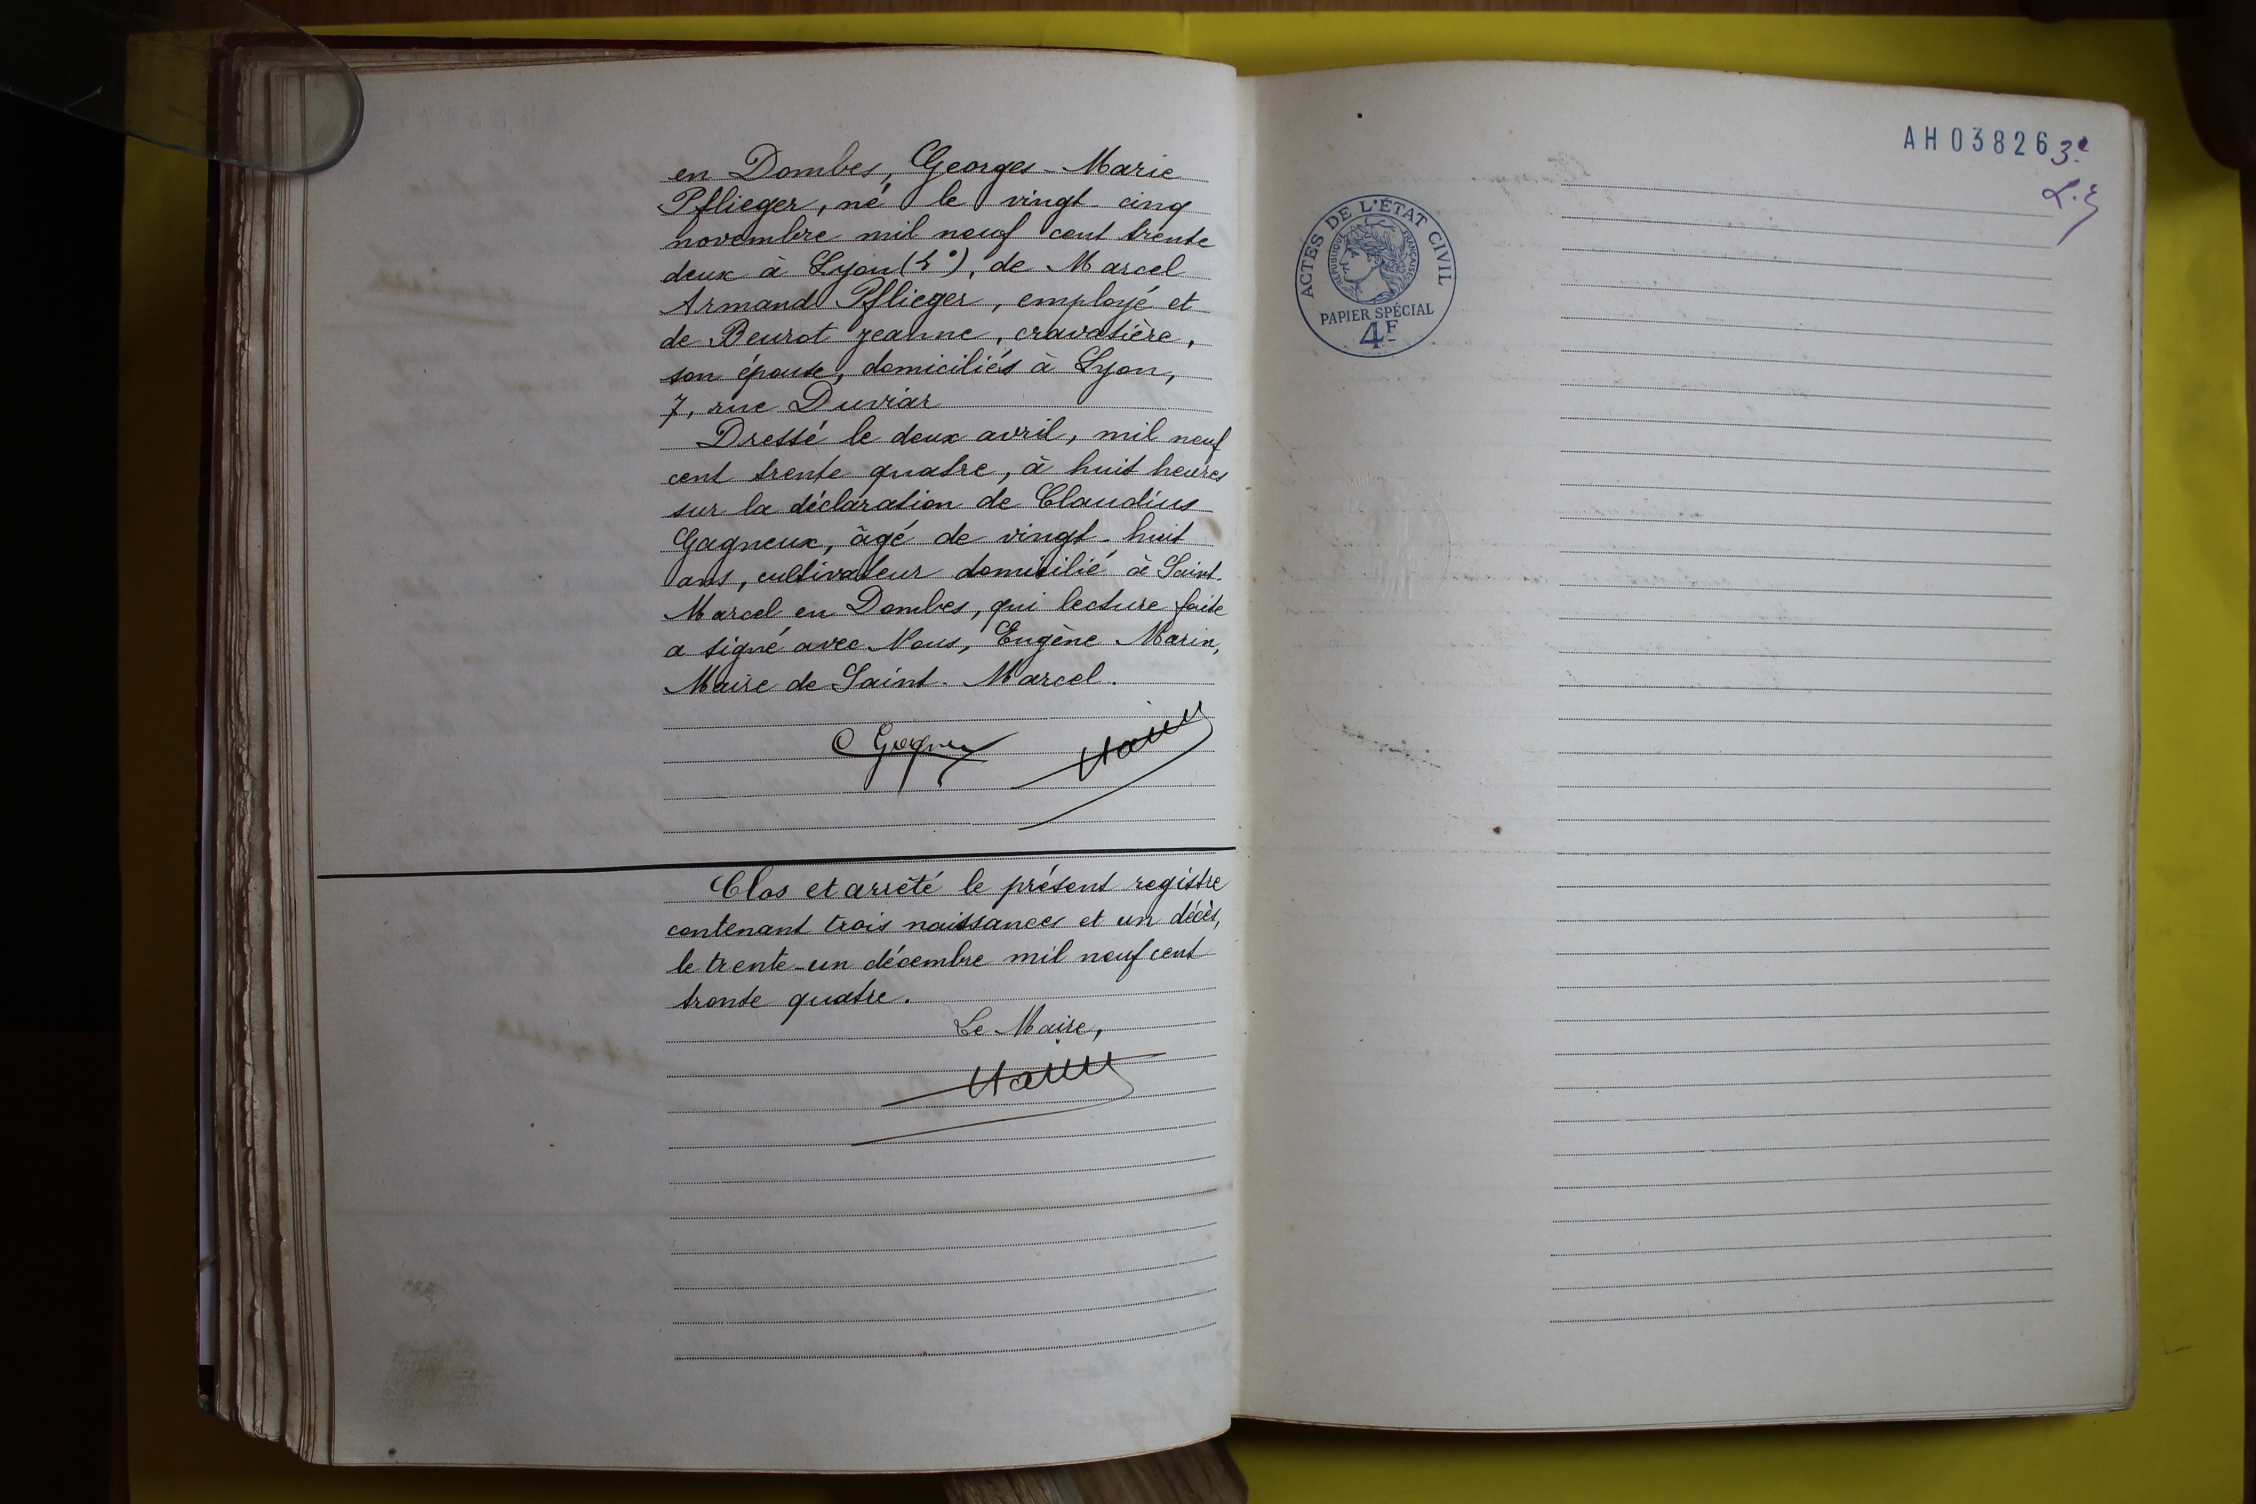 en Dombes, Georges-Marie
Pflieger, né le vingt-cinq
novembre mil neuf cent trente
deux à Lyon, de Marcel
Armand Pflieger, employé et
de Beurot Jeanne, cravatière,
son épouse, domiciliés à Lyon,
7, rue Duviar
Dressé le deux avril, mil neuf
cent trente quatre, à huit heures
sur la déclaration de Claudius
Gagneux, âgé de vingt-huit
ans, cultivateur domicilié à Saint-
Marcel en Dombes, qui lecture faite
a signé avec Nous, Eugène Marin,
Maire de Saint-Marcel.
C Gagneux
Marin
Clos et arrêté le présent registre
contenant trois naissances et un décès,
le trente-un décembre mil neuf cent
trente quatre.
Le Maire,
Marin
AH 03826
3e
ACTES DE L'ÉTAT CIVIL
RÉPUBLIQUE FRANÇAISE
PAPIER SPÉCIAL
4F